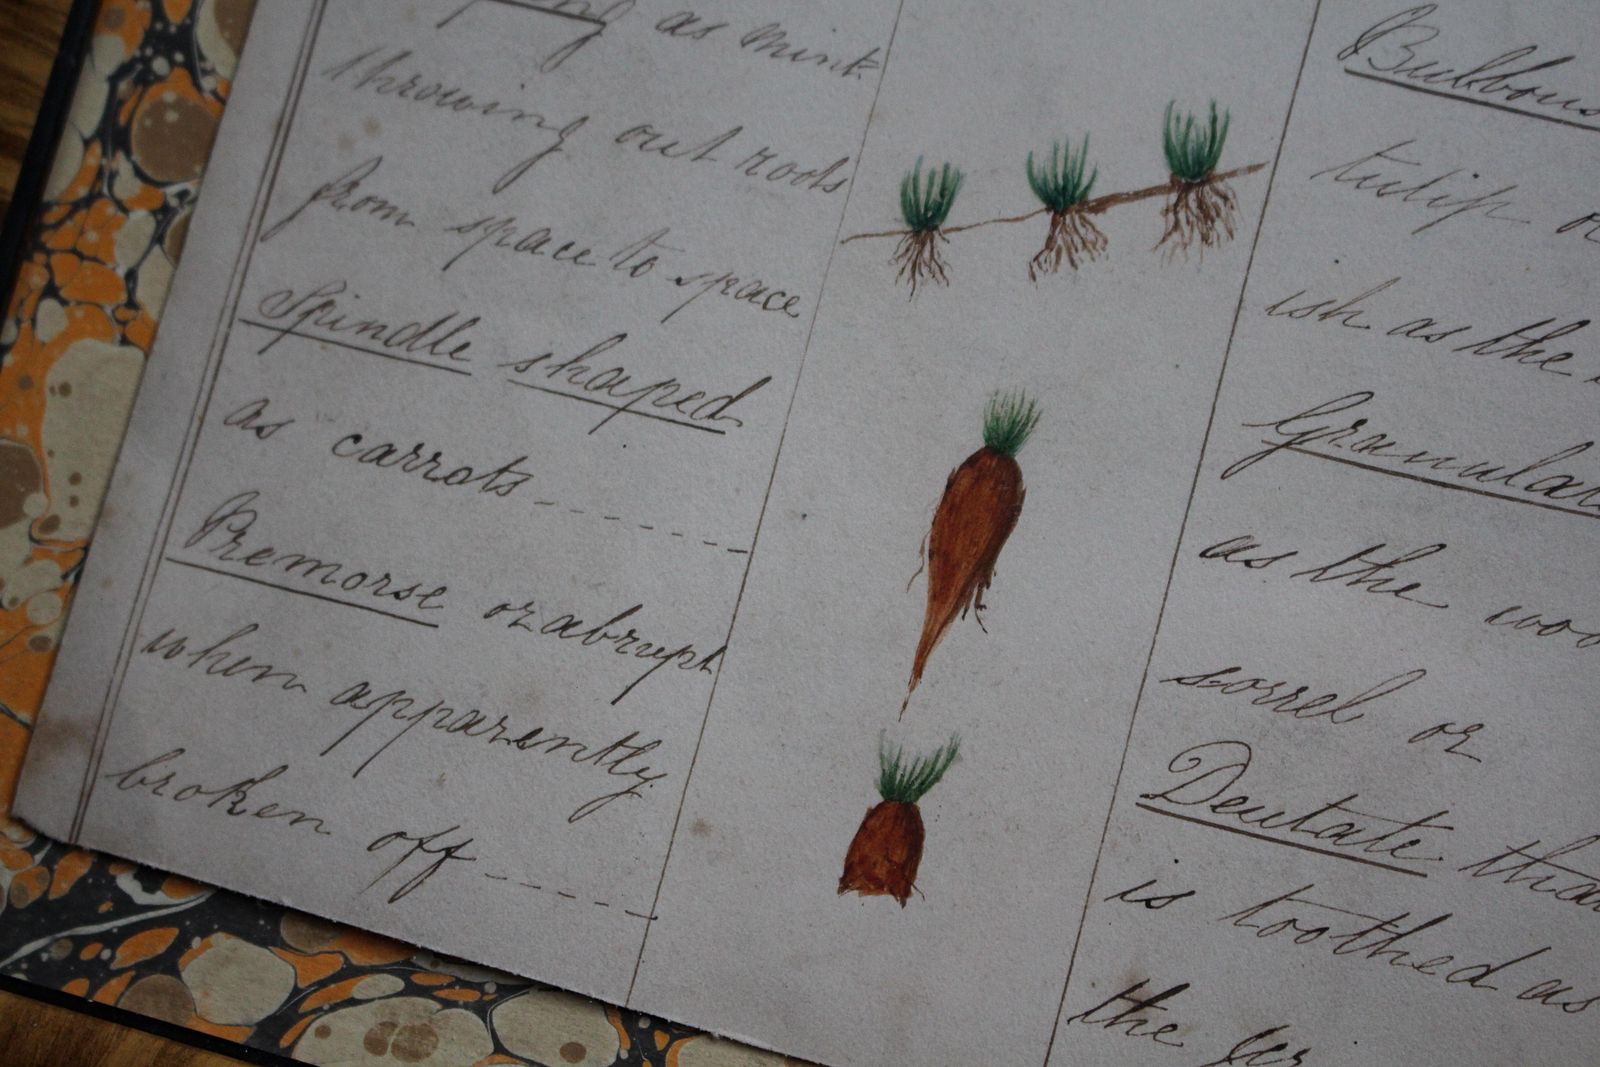 as mint
throwing out roots
from space to space
Spindle shaped
as carrots - - - - - - -
Premorse or abrupt
when apparently
broken off - - - - - -
Bulbous
tulip
ish as the
Granular
as the
sorrel or
Dentate
is toothed as
the